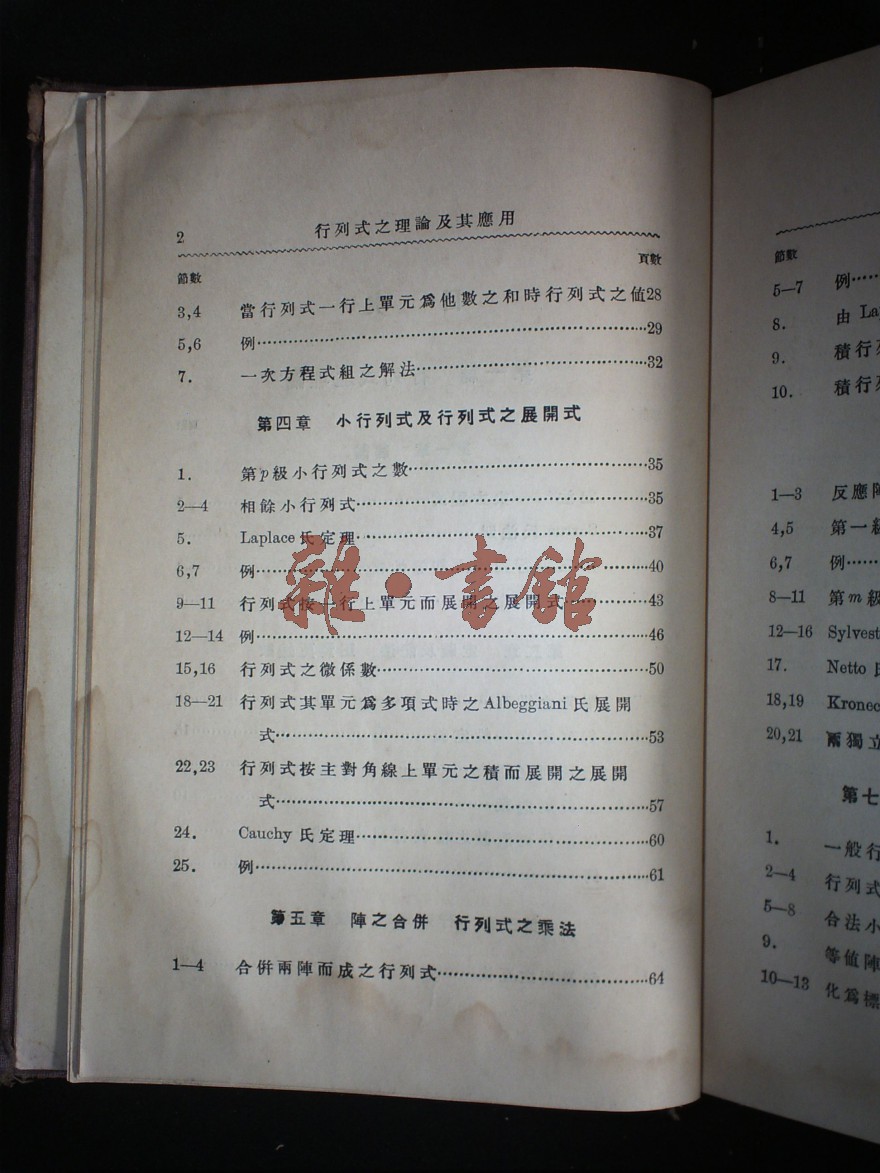 2 行列式之理論及其應用
節數 頁數
3,4 當行列式一行上單元爲他數之和時行列式之値28
5,6 例……29
7. 一次方程式組之解法……32
第四章 小行列式及行列式之展開式
1. 第p級小行列式之數……35
2—4 相餘小行列式……35
5. Laplace氏定理……37
6,7 例……40
9—11 行列式按一行上單元而展開之展開式……43
12—14 例……46
15,16 行列式之微係數……50
18—21 行列式其單元爲多項式時之Albeggiani氏展開
式……53
22,23 行列式按主對角線上單元之積而展開之展開
式……57
24. Cauchy氏定理……60
25. 例……61
第五章 陣之合併 行列式之乘法
1—4 合併兩陣而成之行列式……64
雜·書館
節數
5—7 例……
8. 由 La
9. 積行
10. 積行
1—3 反應陣
4,5 第一級
6,7 例……
8—11 第m級
12—16 Sylvest
17. Netto
18,19 Kronec
20,21 兩獨立
第七
1. 一般行
2—4 行列式
5—8 合法小
9. 等値陣
10—13 化爲標